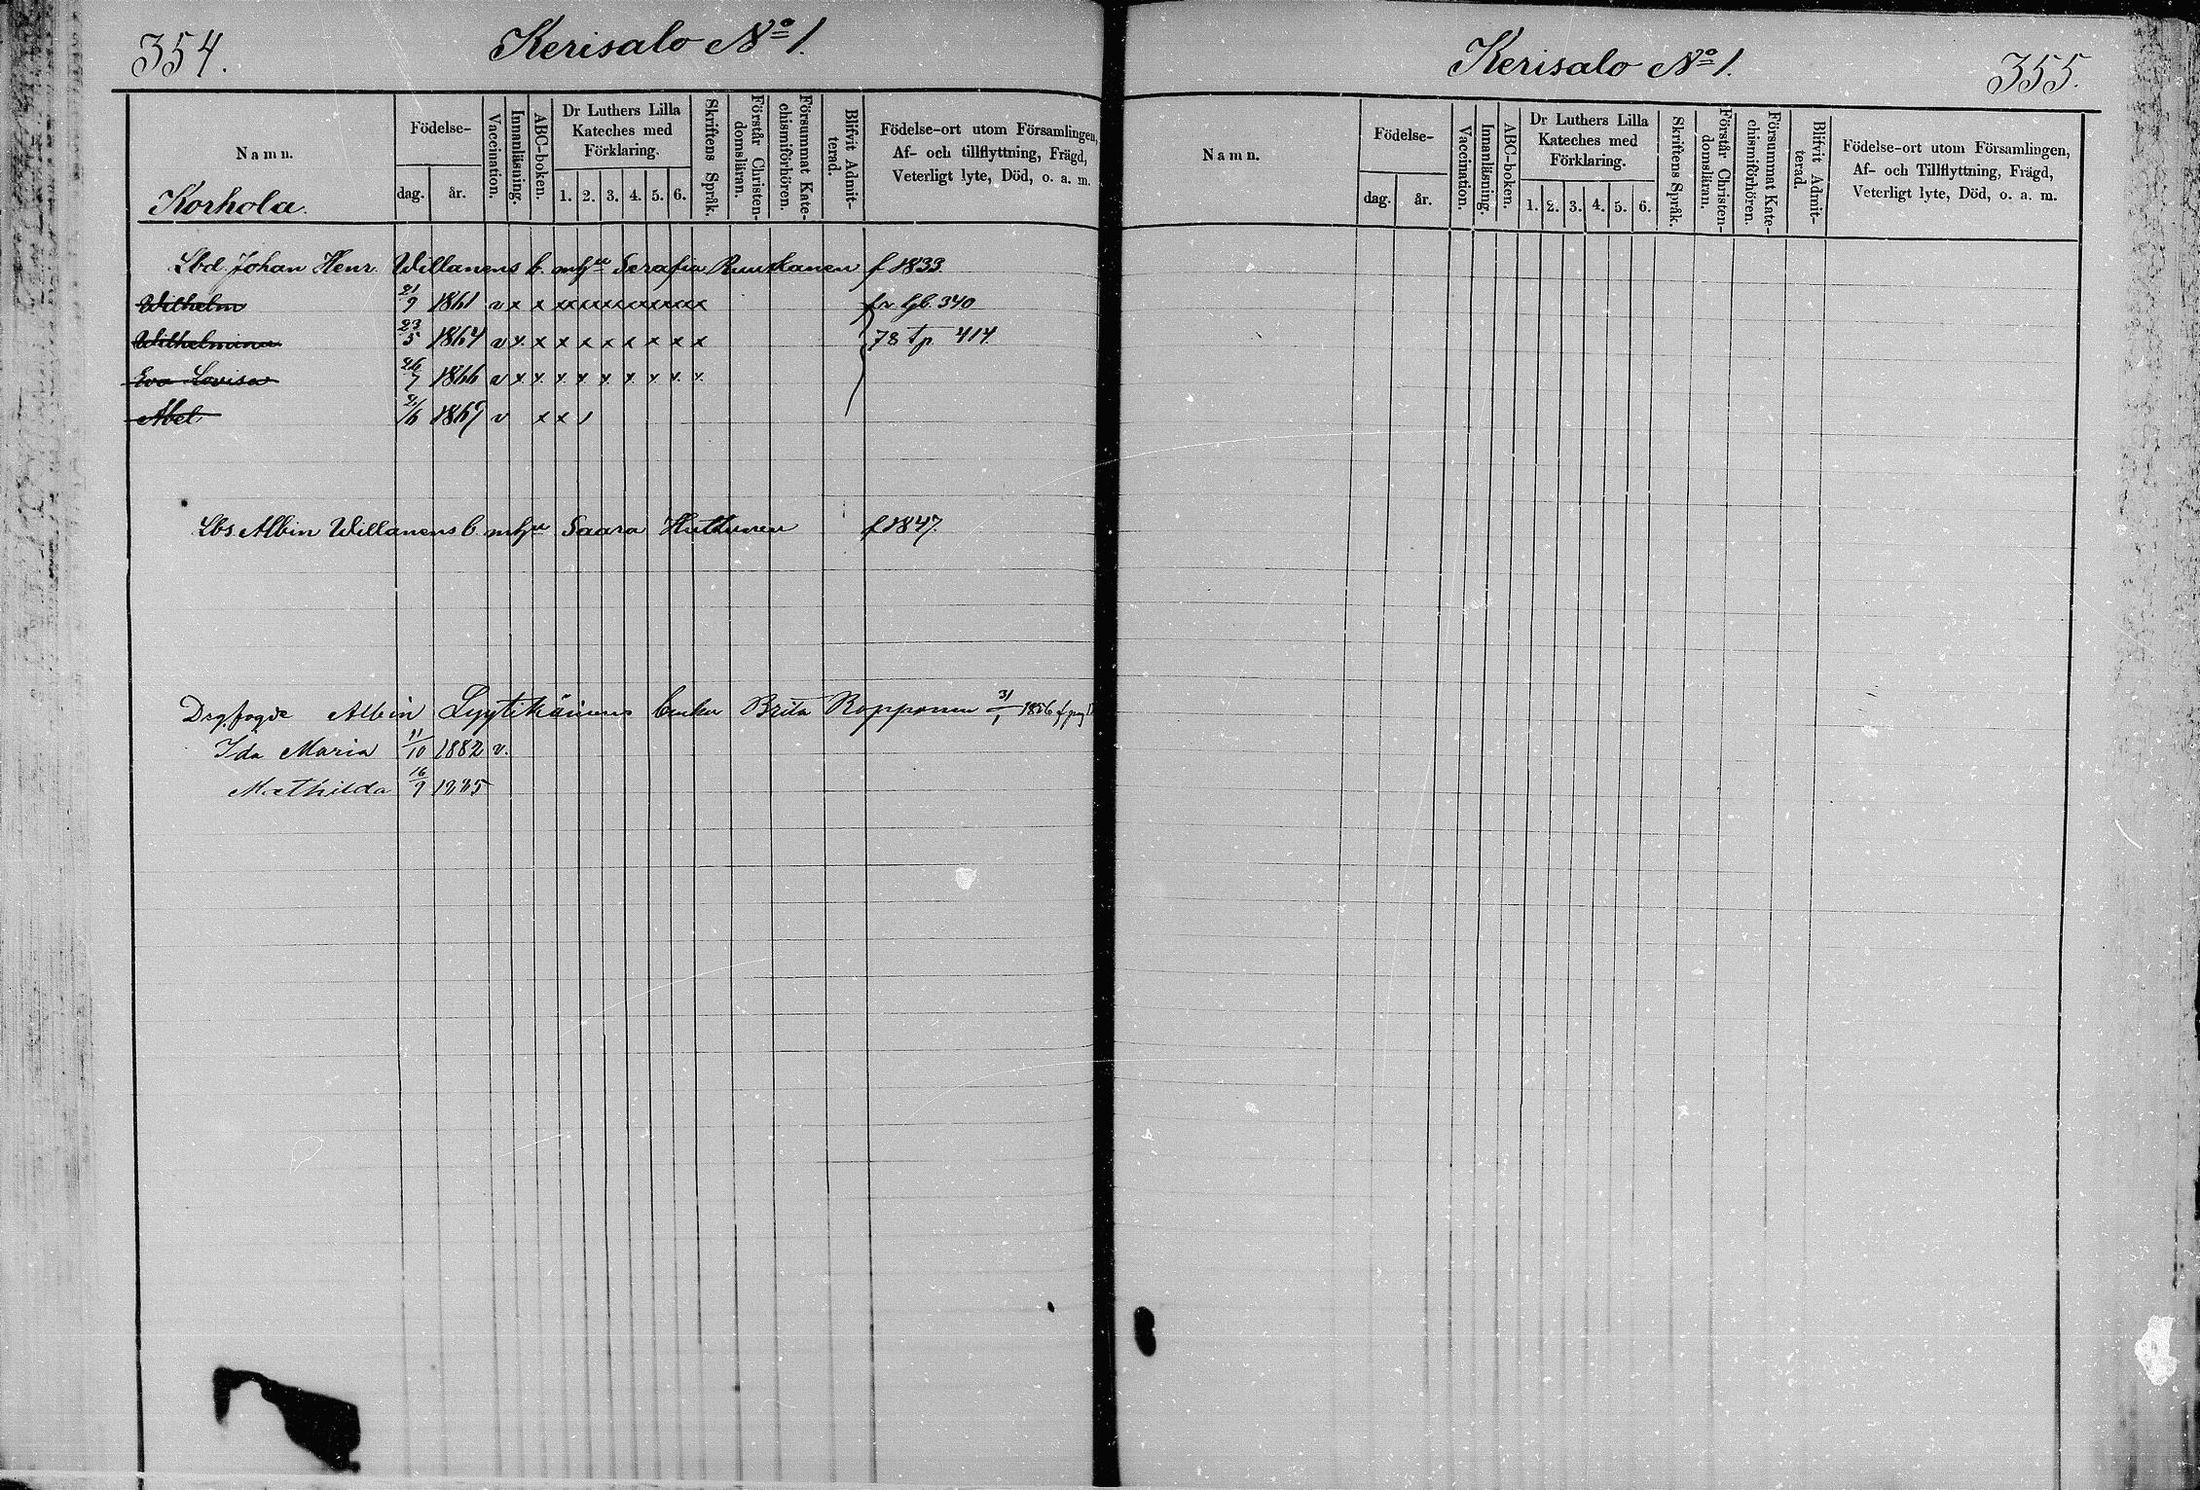 354.
Kerisalo No 1.
Namn.
Födelse-
dag. år.
Vaccination.
Innanläsning.
ABC-boken.
Dr Luthers Lilla
Kateches med
Förklaring.
1. 2. 3. 4. 5. 6.
Skriftens Språk.
Förstår Christen-
domsläran.
Försummat Kate-
chismiförhören.
Blifvit Admit-
terad.
Födelse-ort utom Församlingen,
Af- och tillflyttning, Frägd,
Veterligt lyte, Död, o. a. m.
Korhola.
Lbd. Johan Henr. Willanens b. Serafia Ruuskanen f 1833
Wilhelm 21/9 1861 v x x x x x x x x x
340
Wilhelmina 23/5 1864 v x x x x x x x x x 78 tp 414
Eva Lovisa 26/7 1866 v x x x x x x x x x
Abel 1867 v x x
Lbs. Albin Willanens b. Saara Huttunen f 1847.
Albin Lyytikäinens Brita Ropponen 31/1 1856
Ida Maria 11/10 1882 v.
Mathilda 16/9 1885
Kerisalo No 1.
355.
Namn.
Födelse-
dag. år.
Vaccination.
Innanläsning.
ABC-boken.
Dr Luthers Lilla
Kateches med
Förklaring.
1. 2. 3. 4. 5. 6.
Skriftens Språk.
Förstår Christen-
domsläran.
Försummat Kate-
chismiförhören.
Blifvit Admit-
terad.
Födelse-ort utom Församlingen,
Af- och Tillflyttning, Frägd,
Veterligt lyte, Död, o. a. m.